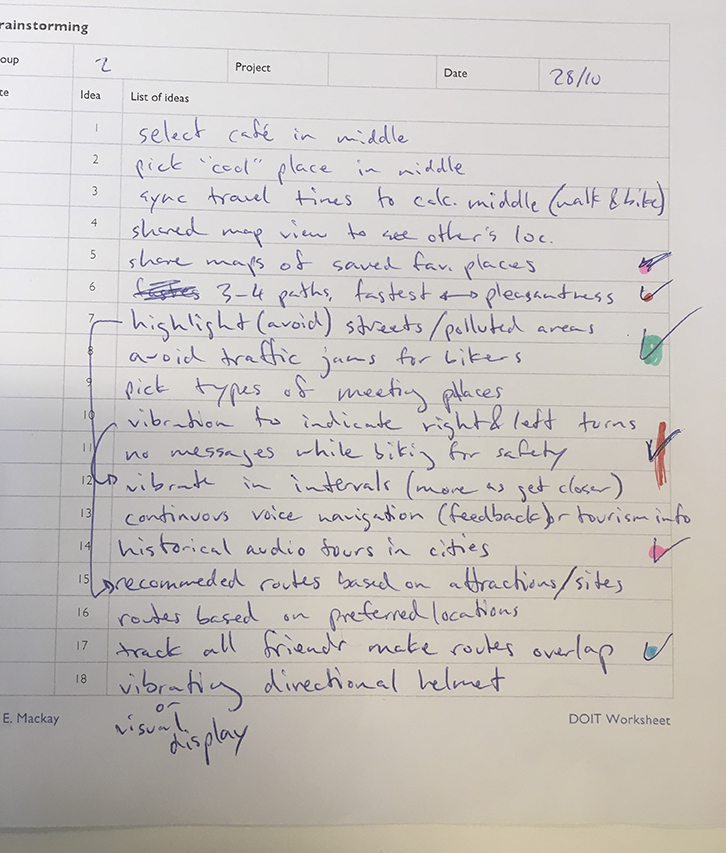 rainstorming
oup 2 Project Date 28/10
te Idea List of ideas
1 select café in middle
2 pick "cool" place in middle
3 sync travel times to calc. middle (walk & bike)
4 shared map view to see other's loc.
5 share maps of saved fav. places
6 3-4 paths, fastest ↔ pleasantness
7 highlight (avoid) streets/polluted areas
8 avoid traffic jams for bikers
9 pick types of meeting places
10 vibration to indicate right & left turns
11 no messages while biking for safety
12 vibrate in intervals (more as get closer)
13 continuous voice navigation (feedback) or tourism info
14 historical audio tours in cities
15 recommeded routes based on attractions/sites
16 routes based on preferred locations
17 track all friends make routes overlap
18 vibrating directional helmet
or
visual
display
E. Mackay DOIT Worksheet